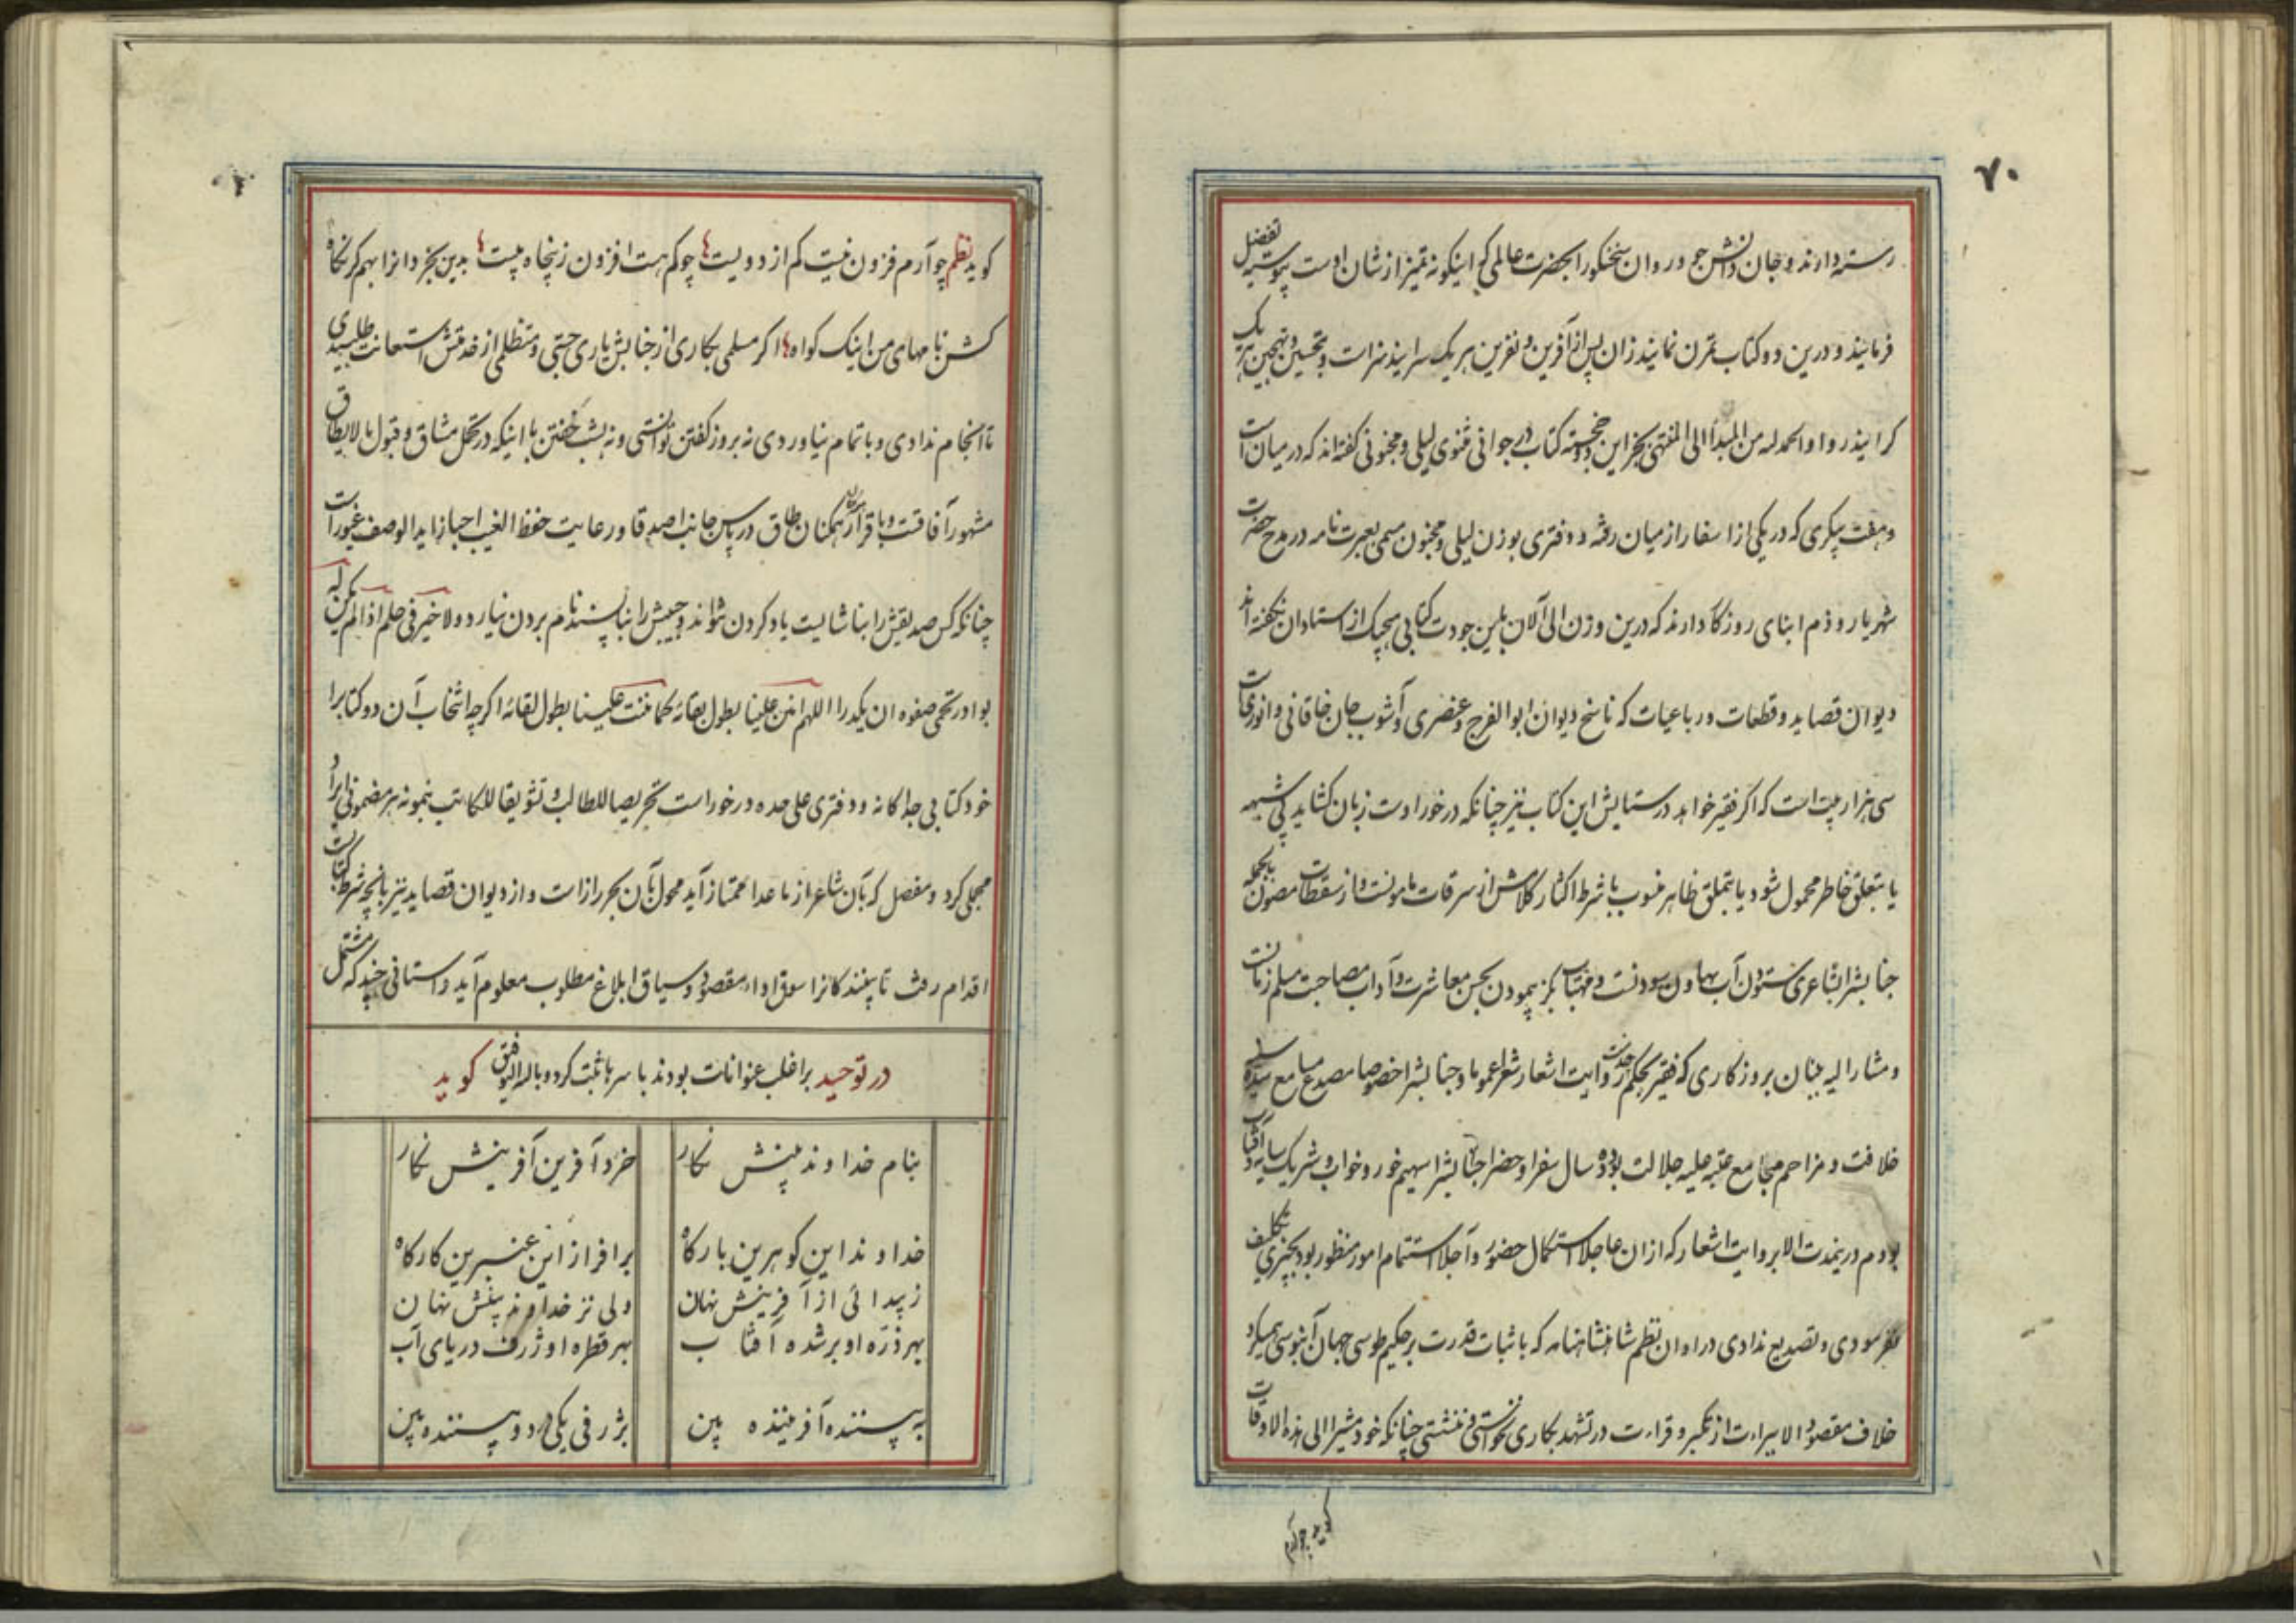 ۷۰
رسته دارند و جان دانش جو و روان سخنگو را بحضرت عالمی که اینگونه تمیز از شان اوست پیوسته تفضیل
فرمایند و درین دو کتاب تمرن نمایند زان پس از آفرین و نفرین هر یک سرایند سزاست و تحسین و تهجین هر یک
کرایند روا و الحمد له من المبدأ الی المنتهی بجز این دو خجسته کتاب در جوانی مثنوی لیلی و مجنونی کفته اند که در میان است
و هفت پیکری که در یکی از اسفار از میان رفته و دفتری بوزن لیلی و مجنون مسمی بعبرت نامه در مدح حضرت
شهریار و ذم ابنای روزکار دارند که درین وزن الی الآن باین جودت کتابی هیچیک از استادان نکفته اند
دیوان قصاید و قطعات و رباعیات که ناسخ دیوان ابوالفرج و عنصری و آشوب جان خاقانی و انوری است
سی هزار بیت است که اکر فقیر خواهد در ستایش این کتاب نیز چنانکه در خور اوست زبان کشاید بی شبهه
یا بتعلق خاطر محمول شود یا بتملق ظاهر منسوب با شرط اکثار کلامش از سرقات مامونست و از سقطات مصون بالجمله
جنابش را بشاعری ستودن آب بهاون سودنست و مهتاب بگز پیمودن بحسن معاشرت و آداب مصاحبت مسلم زمانست
و مشار الیه بینان بروزکاری که فقیر بحکم خدمت روایت اشعار شعرا عموما و جنابش را خصوصا مصدع مسامع سده
خلافت و مزاحم مجامع عتبه علیه جلالت بود ده سال سفرا و حضرا جنابش را سهیم خور و خواب و شریک سایه و آفتاب
بودم درینمدت الا بروایت اشعار که از ان عاجلا استکمال حضور و آجلا استتمام امور منظور بود بچیزی تکلیف
نفرسودی و تصدیع ندادی در اوان نظم شاهنشاهنامه که باثبات قدرت بر حکیم طوسی جهان آبنوسی همیکرد
خلاف مقصود الا ببراءت از تکبر و قراءت در تشهد بکاری نخواستی و ننشستی چنانکه خود مشیرا الی هذه الاوقات
کوید چو آرم
کوید نظم چو آرم فزون نیست کم از دویست چو کم هست افزون ز پنجاه بیست بدین بخردان را بهم کر نکاه
کشن نامهای من اینک کواه اکر مسلمی بکاری از جنابش یاری جستی و متظلمی از خدمتش استعانت طلبیدی
تا انجام ندادی و باتمام نیاوردی نه بروز کفتن توانستی و نه بشب خفتن با اینکه در تحمل مشاق و قبول ما لایطاق
مشهور آفاقست و باقرار همکنان طاق در پاس جانب اصدقا و رعایت حفظ الغیب احبا زاید الوصف غیور است
چنانکه کس صدیقش را بناشایست یاد کردن نتواند و حبیبش را بناپسند نام بردن نیارد و لا خیر فی حلم اذا لم یکن له
بوادر تحمی صفوه ان یکدرا اللهم امنن علینا بطول بقائه کما مننت علینا بطول لقائه اکرچه انتخاب آن دو کتاب را
خود کتابی جداکانه و دفتری علی حده در خور است تحریصا للطالب و تشویقا للکاتب بنمونه هر مضمونی ایراد
مجملی کرد و مفصل که بآن شاعر از ما عدا ممتاز آید محول بآن بحر راز است و از دیوان قصاید نیز بآنچه شرط کتابست
اقدام رفت تا بینندکانرا سوق اداء مقصود و سیاق ابلاغ مطلوب معلوم آید داستانی چند که مشتمل
در توحید بر اغلب عنوانات بودند با سرها ثبت کرد و بالله التوفیق کوید
بنام خداوند بینش نکار خرد آفرین آفرینش نکار
خداوند این کوهرین بارکاه برافراز این عنبرین کارکاه
ز پیدائی از آفرینش نهان ولی نز خداوند بینش نهان
بهر ذره او بر شده آفتاب بهر قطره او ژرف دریای آب
به بیننده آفریننده بین بژرفی یکی در دو بیننده بین